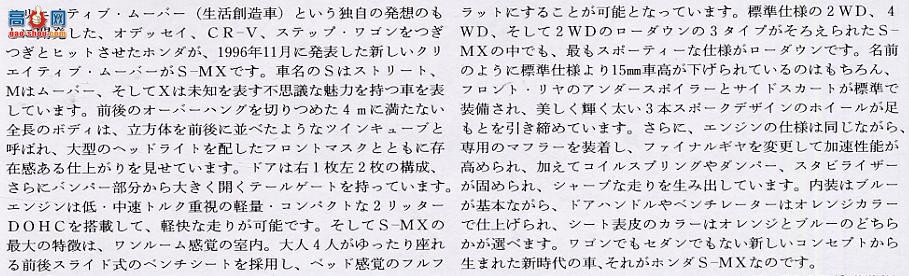 ティブ・ムーバー（生活創造車）という独自の発想のも
した、オデッセイ、ＣＲ−Ｖ、ステップ・ワゴンをつぎ
つぎとヒットさせたホンダが、1996年11月に発表した新しいクリ
エイティブ・ムーバーがＳ−ＭＸです。車名のＳはストリート、
Ｍはムーバー、そしてＸは未知を表す不思議な魅力を持つ車を表
しています。前後のオーバーハングを切りつめた４ｍに満たない
全長のボディは、立方体を前後に並べたようなツインキューブと
呼ばれ、大型のヘッドライトを配したフロントマスクとともに存
在感ある仕上がりを見せています。ドアは右１枚左２枚の構成、
さらにバンパー部分から大きく開くテールゲートを持っています。
エンジンは低・中速トルク重視の軽量・コンパクトな２リッター
ＤＯＨＣを搭載して、軽快な走りが可能です。そしてＳ−ＭＸの
最大の特徴は、ワンルーム感覚の室内。大人４人がゆったり座れ
る前後スライド式のベンチシートを採用し、ベッド感覚のフルフ
ラットにすることが可能となっています。標準仕様の２ＷＤ、４
ＷＤ、そして２ＷＤのローダウンの３タイプがそろえられたＳ−
ＭＸの中でも、最もスポーティーな仕様がローダウンです。名前
のように標準仕様より15㎜車高が下げられているのはもちろん、
フロント・リヤのアンダースポイラーとサイドスカートが標準で
装備され、美しく輝く太い３本スポークデザインのホイールが足
もとを引き締めています。さらに、エンジンの仕様は同じながら、
専用のマフラーを装着し、ファイナルギヤを変更して加速性能が
高められ、加えてコイルスプリングやダンパー、スタビライザー
が固められ、シャープな走りを生み出しています。内装はブルー
が基本ながら、ドアハンドルやベンチレーターはオレンジカラー
で仕上げられ、シート表皮のカラーはオレンジとブルーのどちら
かが選べます。ワゴンでもセダンでもない新しいコンセプトから
生まれた新時代の車、それがホンダＳ−ＭＸなのです。